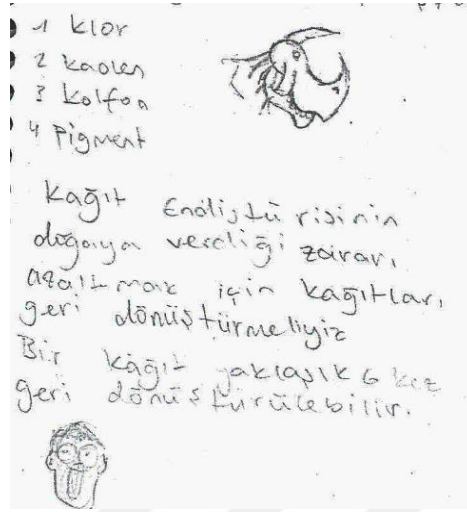 1 klor
2 kaolen
3 kolfon
4 Pigment
Kağıt Endüştürisinin
doğaya verdiği zararı
azaltmak için kağıtları
geri dönüştürmeliyiz
Bir kağıt yaklaşık 6 kez
geri dönüştürülebilir.